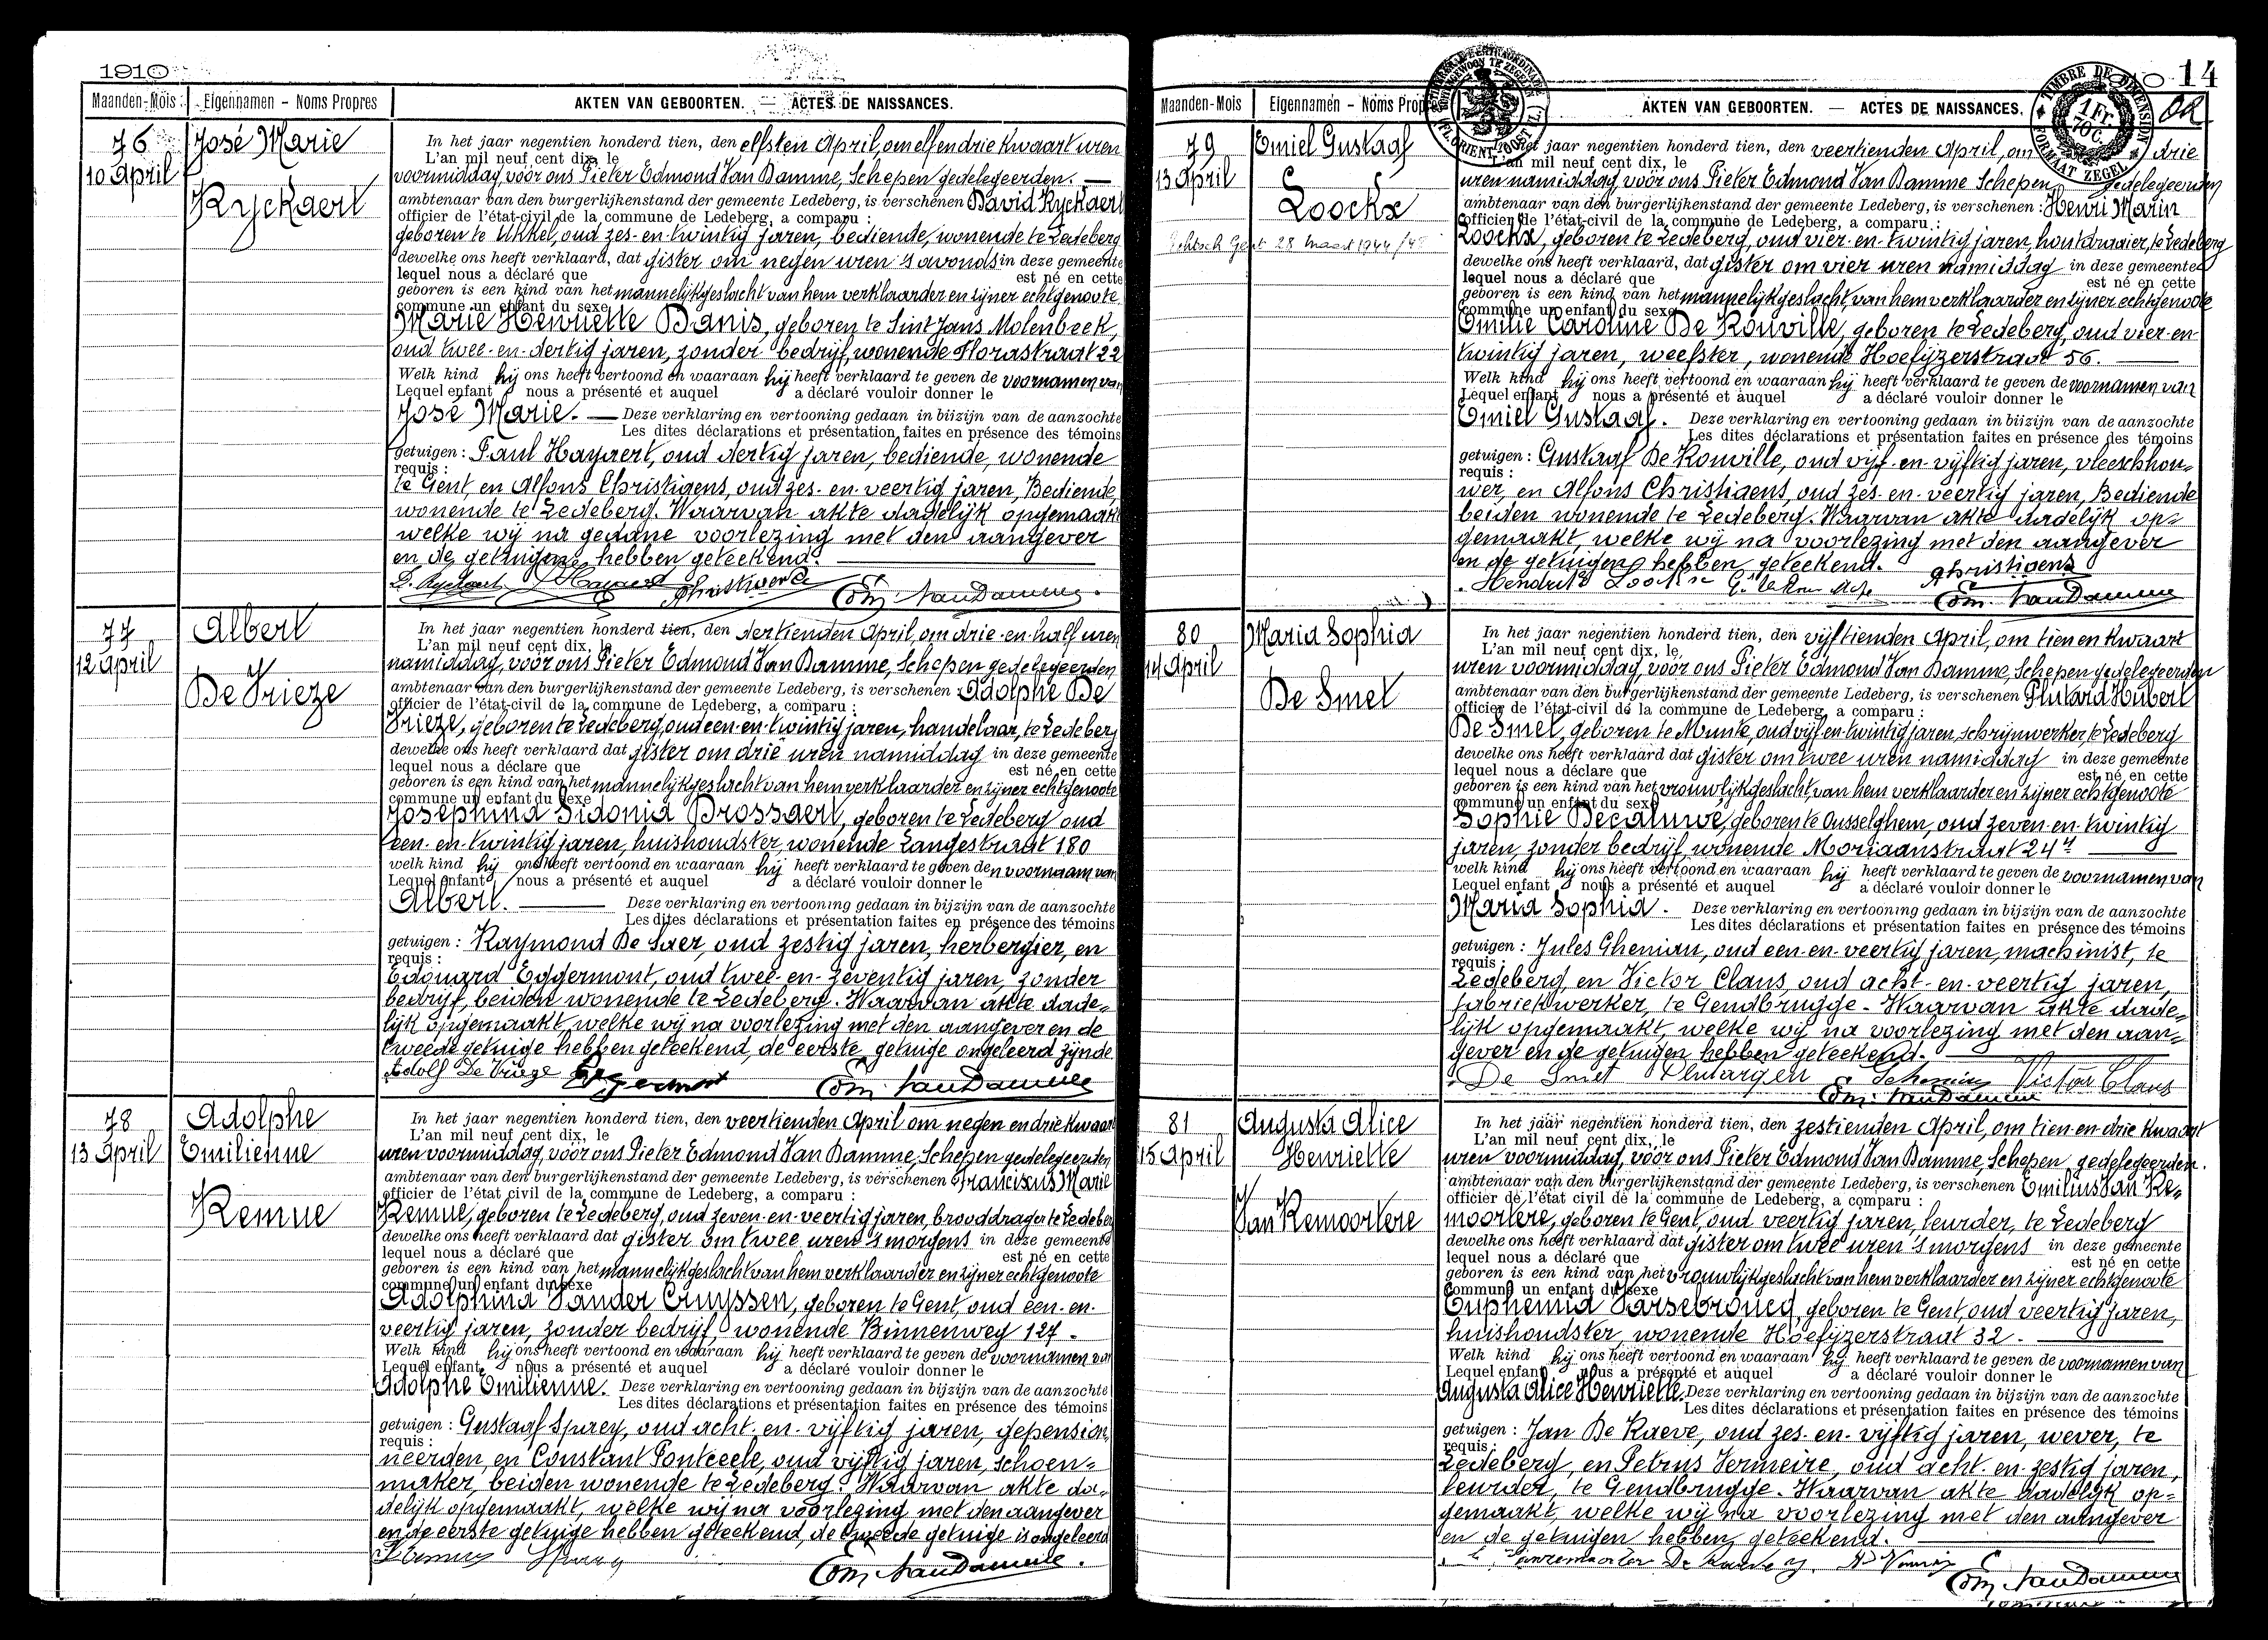 1910
Maanden-Mois Eigennamen – Noms Propres AKTEN VAN GEBOORTEN. — ACTES DE NAISSANCES.
76 José Marie
10 April Ryckaert
In het jaar negentien honderd tien, den elfsten April, om elf en drie kwaart uren
L'an mil neuf cent dix, le
voormiddag, vóór ons Pieter Edmond Van Damme, Schepen gedelegeerden. —
ambtenaar van den burgerlijkenstand der gemeente Ledeberg, is verschenen David Ryckaert
officier de l'état-civil de la commune de Ledeberg, a comparu :
geboren te Ukkel, oud zes-en-twintig jaren, bediende, wonende te Ledeberg
dewelke ons heeft verklaard, dat gister om negen uren 's avonds in deze gemeente
lequel nous a déclaré que est né en cette
geboren is een kind van het mannelijk geslacht van hem verklaarder en zijner echtgenoote
commune un enfant du sexe
Marie Henriette Danis, geboren te Sint Jans Molenbeek,
oud twee-en-dertig jaren, zonder bedrijf, wonende Florastraat 22
Welk kind hij ons heeft vertoond en waaraan hij heeft verklaard te geven de voornamen van
Lequel enfant nous a présenté et auquel a déclaré vouloir donner le
José Marie. — Deze verklaring en vertooning gedaan in bijzijn van de aanzochte
Les dites déclarations et présentation faites en présence des témoins
getuigen : Paul Hayaert, oud dertig jaren, bediende, wonende
requis :
te Gent, en Alfons Christiaens, oud zes-en-veertig jaren, Bediende,
wonende te Ledeberg. Waarvan akte dadelijk opgemaakt
welke wij na gedane voorlezing met den aangever
en de getuigen hebben geteekend.
D. Ryckaert Hayaert AChristiaens Edm. Van Damme
77 Albert
12 April De Vrieze
In het jaar negentien honderd tien, den dertienden April, om drie-en-half uren
L'an mil neuf cent dix, le
namiddag, vóór ons Pieter Edmond Van Damme, Schepen gedelegeerden
ambtenaar van den burgerlijkenstand der gemeente Ledeberg, is verschenen Adolphe De
officier de l'état-civil de la commune de Ledeberg, a comparu :
Vrieze, geboren te Ledeberg, oud een-en-twintig jaren, handelaar, te Ledeberg
dewelke ons heeft verklaard dat gister om drie uren namiddag in deze gemeente
lequel nous a déclare que est né en cette
geboren is een kind van het mannelijk geslacht van hem verklaarder en zijner echtgenoote
commune un enfant du sexe
Josephina Sidonia Brossaert, geboren te Ledeberg oud
een-en-twintig jaren, huishoudster, wonende Langestraat 180
welk kind hij ons heeft vertoond en waaraan hij heeft verklaard te geven den voornaam van
Lequel enfant nous a présenté et auquel a déclaré vouloir donner le
Albert. — Deze verklaring en vertooning gedaan in bijzijn van de aanzochte
Les dites déclarations et présentation faites en présence des témoins
getuigen : Raymond De Saer, oud zestig jaren, herbergier, en
requis :
Edouard Eggermont, oud twee-en-zeventig jaren, zonder
bedrijf, beiden wonende te Ledeberg. Waarvan akte dade=
lijk opgemaakt, welke wij na voorlezing met den aangever en de
tweede getuige hebben geteekend, de eerste getuige ongeleerd zijnde
Adolf De Vrieze Eggermont Edm. Van Damme
78 Adolphe
13 April Emilienne
Remue
In het jaar negentien honderd tien, den veertienden April om negen en drie kwaart
L'an mil neuf cent dix, le
uren voormiddag, vóór ons Pieter Edmond Van Damme, Schepen gedelegeerden
ambtenaar van den burgerlijkenstand der gemeente Ledeberg, is verschenen Franciscus Marie
officier de l'état civil de la commune de Ledeberg, a comparu :
Remue, geboren te Ledeberg, oud zeven-en-veertig jaren, brooddrager te Ledeberg
dewelke ons heeft verklaard dat gister om twee uren 's morgens in deze gemeente
lequel nous a déclaré que est né en cette
geboren is een kind van het mannelijk geslacht van hem verklaarder en zijner echtgenoote
commune un enfant du sexe
Adolphina Vander Cruyssen, geboren te Gent, oud een-en-
veertig jaren, zonder bedrijf, wonende Binnenweg 127.
Welk kind hij ons heeft vertoond en waaraan hij heeft verklaard te geven de voornamen van
Lequel enfant nous a présenté et auquel a déclaré vouloir donner le
Adolphe Emilienne. Deze verklaring en vertooning gedaan in bijzijn van de aanzochte
Les dites déclarations et présentation faites en présence des témoins
getuigen : Gustaaf Spaey, oud acht-en-vijftig jaren, gepension,
requis :
neerden, en Constant Ponteele, oud vijftig jaren, schoen=
maker, beiden wonende te Ledeberg. Waarvan akte da=
delijk opgemaakt, welke wij na voorlezing met den aangever
en de eerste getuige hebben geteekend, de tweede getuige is ongeleerd
Edm. Van Damme.
14
Maanden-Mois Eigennamen – Noms Propres AKTEN VAN GEBOORTEN. — ACTES DE NAISSANCES.
TIMBRE DE DIMENSION
1 Fr. 70 c.
FORMAAT ZEGEL
79 Emiel Gustaaf
13 April Loockx
Gent 28 Maart 1944
In het jaar negentien honderd tien, den veertienden April, om drie
L'an mil neuf cent dix, le
uren namiddag, vóór ons Pieter Edmond Van Damme Schepen gedelegeerden
ambtenaar van den burgerlijkenstand der gemeente Ledeberg, is verschenen : Henri Marin
officier de l'état-civil de la commune de Ledeberg, a comparu :
Loockx, geboren te Ledeberg, oud vier-en-twintig jaren, houtdraaier, te Ledeberg
dewelke ons heeft verklaard, dat gister om vier uren namiddag in deze gemeente
lequel nous a déclaré que est né en cette
geboren is een kind van het mannelijk geslacht, van hem verklaarder en zijner echtgenoote
commune un enfant du sexe
Emilie Caroline De Konville, geboren te Ledeberg, oud vier-en-
twintig jaren, weefster, wonende Hoefijzerstraat 56. —
Welk kind hij ons heeft vertoond en waaraan hij heeft verklaard te geven de voornamen van
Lequel enfant nous a présenté et auquel a déclaré vouloir donner le
Emiel Gustaaf. Deze verklaring en vertooning gedaan in bijzijn van de aanzochte
Les dites déclarations et présentation faites en présence des témoins
getuigen : Gustaaf De Konville, oud vijf-en-vijftig jaren, vleeschhou=
requis :
wer, en Alfons Christiaens, oud zes-en-veertig jaren, Bediende
beiden wonende te Ledeberg. Waarvan akte dadelijk op=
gemaakt, welke wij na voorlezing met den aangever
en de getuigen hebben geteekend. AChristiaens
Hendrik Loockx Edm. Van Damme
80 Maria Sophia
14 April De Smet
In het jaar negentien honderd tien, den vijftienden April, om tien en kwaart
L'an mil neuf cent dix, le
uren voormiddag, vóór ons Pieter Edmond Van Damme, Schepen gedelegeerden
ambtenaar van den burgerlijkenstand der gemeente Ledeberg, is verschenen Plutard Hubert
officier de l'état-civil de la commune de Ledeberg, a comparu :
De Smet, geboren te Munte, oud vijf-en-twintig jaren, schrijnwerker, te Ledeberg
dewelke ons heeft verklaard dat gister om twee uren namiddag in deze gemeente
lequel nous a déclaré que est né en cette
geboren is een kind van het vrouwlijk geslacht, van hem verklaarder en zijner echtgenoote
commune un enfant du sexe
Sophie Decaluwe, geboren te Ousselghem, oud zeven-en-twintig
jaren, zonder bedrijf, wonende Moriaanstraat 24 —
welk kind hij ons heeft vertoond en waaraan hij heeft verklaard te geven de voornamen van
Lequel enfant nous a présenté et auquel a déclaré vouloir donner le
Maria Sophia. Deze verklaring en vertooning gedaan in bijzijn van de aanzochte
Les dites déclarations et présentation faites en présence des témoins
getuigen : Jules Ghemian, oud een-en-veertig jaren, machinist, te
requis :
Ledeberg, en Victor Claus, oud acht-en-veertig jaren,
fabriekwerker, te Gendbrugge. Waarvan akte dade=
lijk opgemaakt, welke wij na voorlezing met den aan=
gever en de getuigen hebben geteekend.
De Smet Victor Claus
Edm. Van Damme
81 Augusta Alice
15 April Henriette
Van Remoortere
In het jaar negentien honderd tien, den zestienden April, om tien-en-drie kwaart
L'an mil neuf cent dix, le
uren voormiddag, vóór ons Pieter Edmond Van Damme, Schepen gedelegeerden.
ambtenaar van den burgerlijkenstand der gemeente Ledeberg, is verschenen Emilius Van Re=
officier de l'état civil de la commune de Ledeberg, a comparu :
moortere, geboren te Gent, oud veertig jaren, leurder, te Ledeberg
dewelke ons heeft verklaard dat gister om twee uren 's morgens in deze gemeente
lequel nous a déclaré que est né en cette
geboren is een kind van het vrouwlijk geslacht van hem verklaarder en zijner echtgenoote
commune un enfant du sexe
Euphemia Parsebroucq, geboren te Gent oud veertig jaren,
huishoudster, wonende Hoefijzerstraat 32. —
Welk kind hij ons heeft vertoond en waaraan hij heeft verklaard te geven de voornamen van
Lequel enfant nous a présenté et auquel a déclaré vouloir donner le
Augusta Alice Henriette. Deze verklaring en vertooning gedaan in bijzijn van de aanzochte
Les dites déclarations et présentation faites en présence des témoins
getuigen : Jan De Raeve, oud zes-en-vijftig jaren, wever, te
requis :
Ledeberg, en Petrus Vermeire, oud acht-en-zestig jaren,
leurder, te Gendbrugge. Waarvan akte dadelijk op=
gemaakt, welke wij na voorlezing met den aangever
en de getuigen hebben geteekend.
Edm. Van Damme